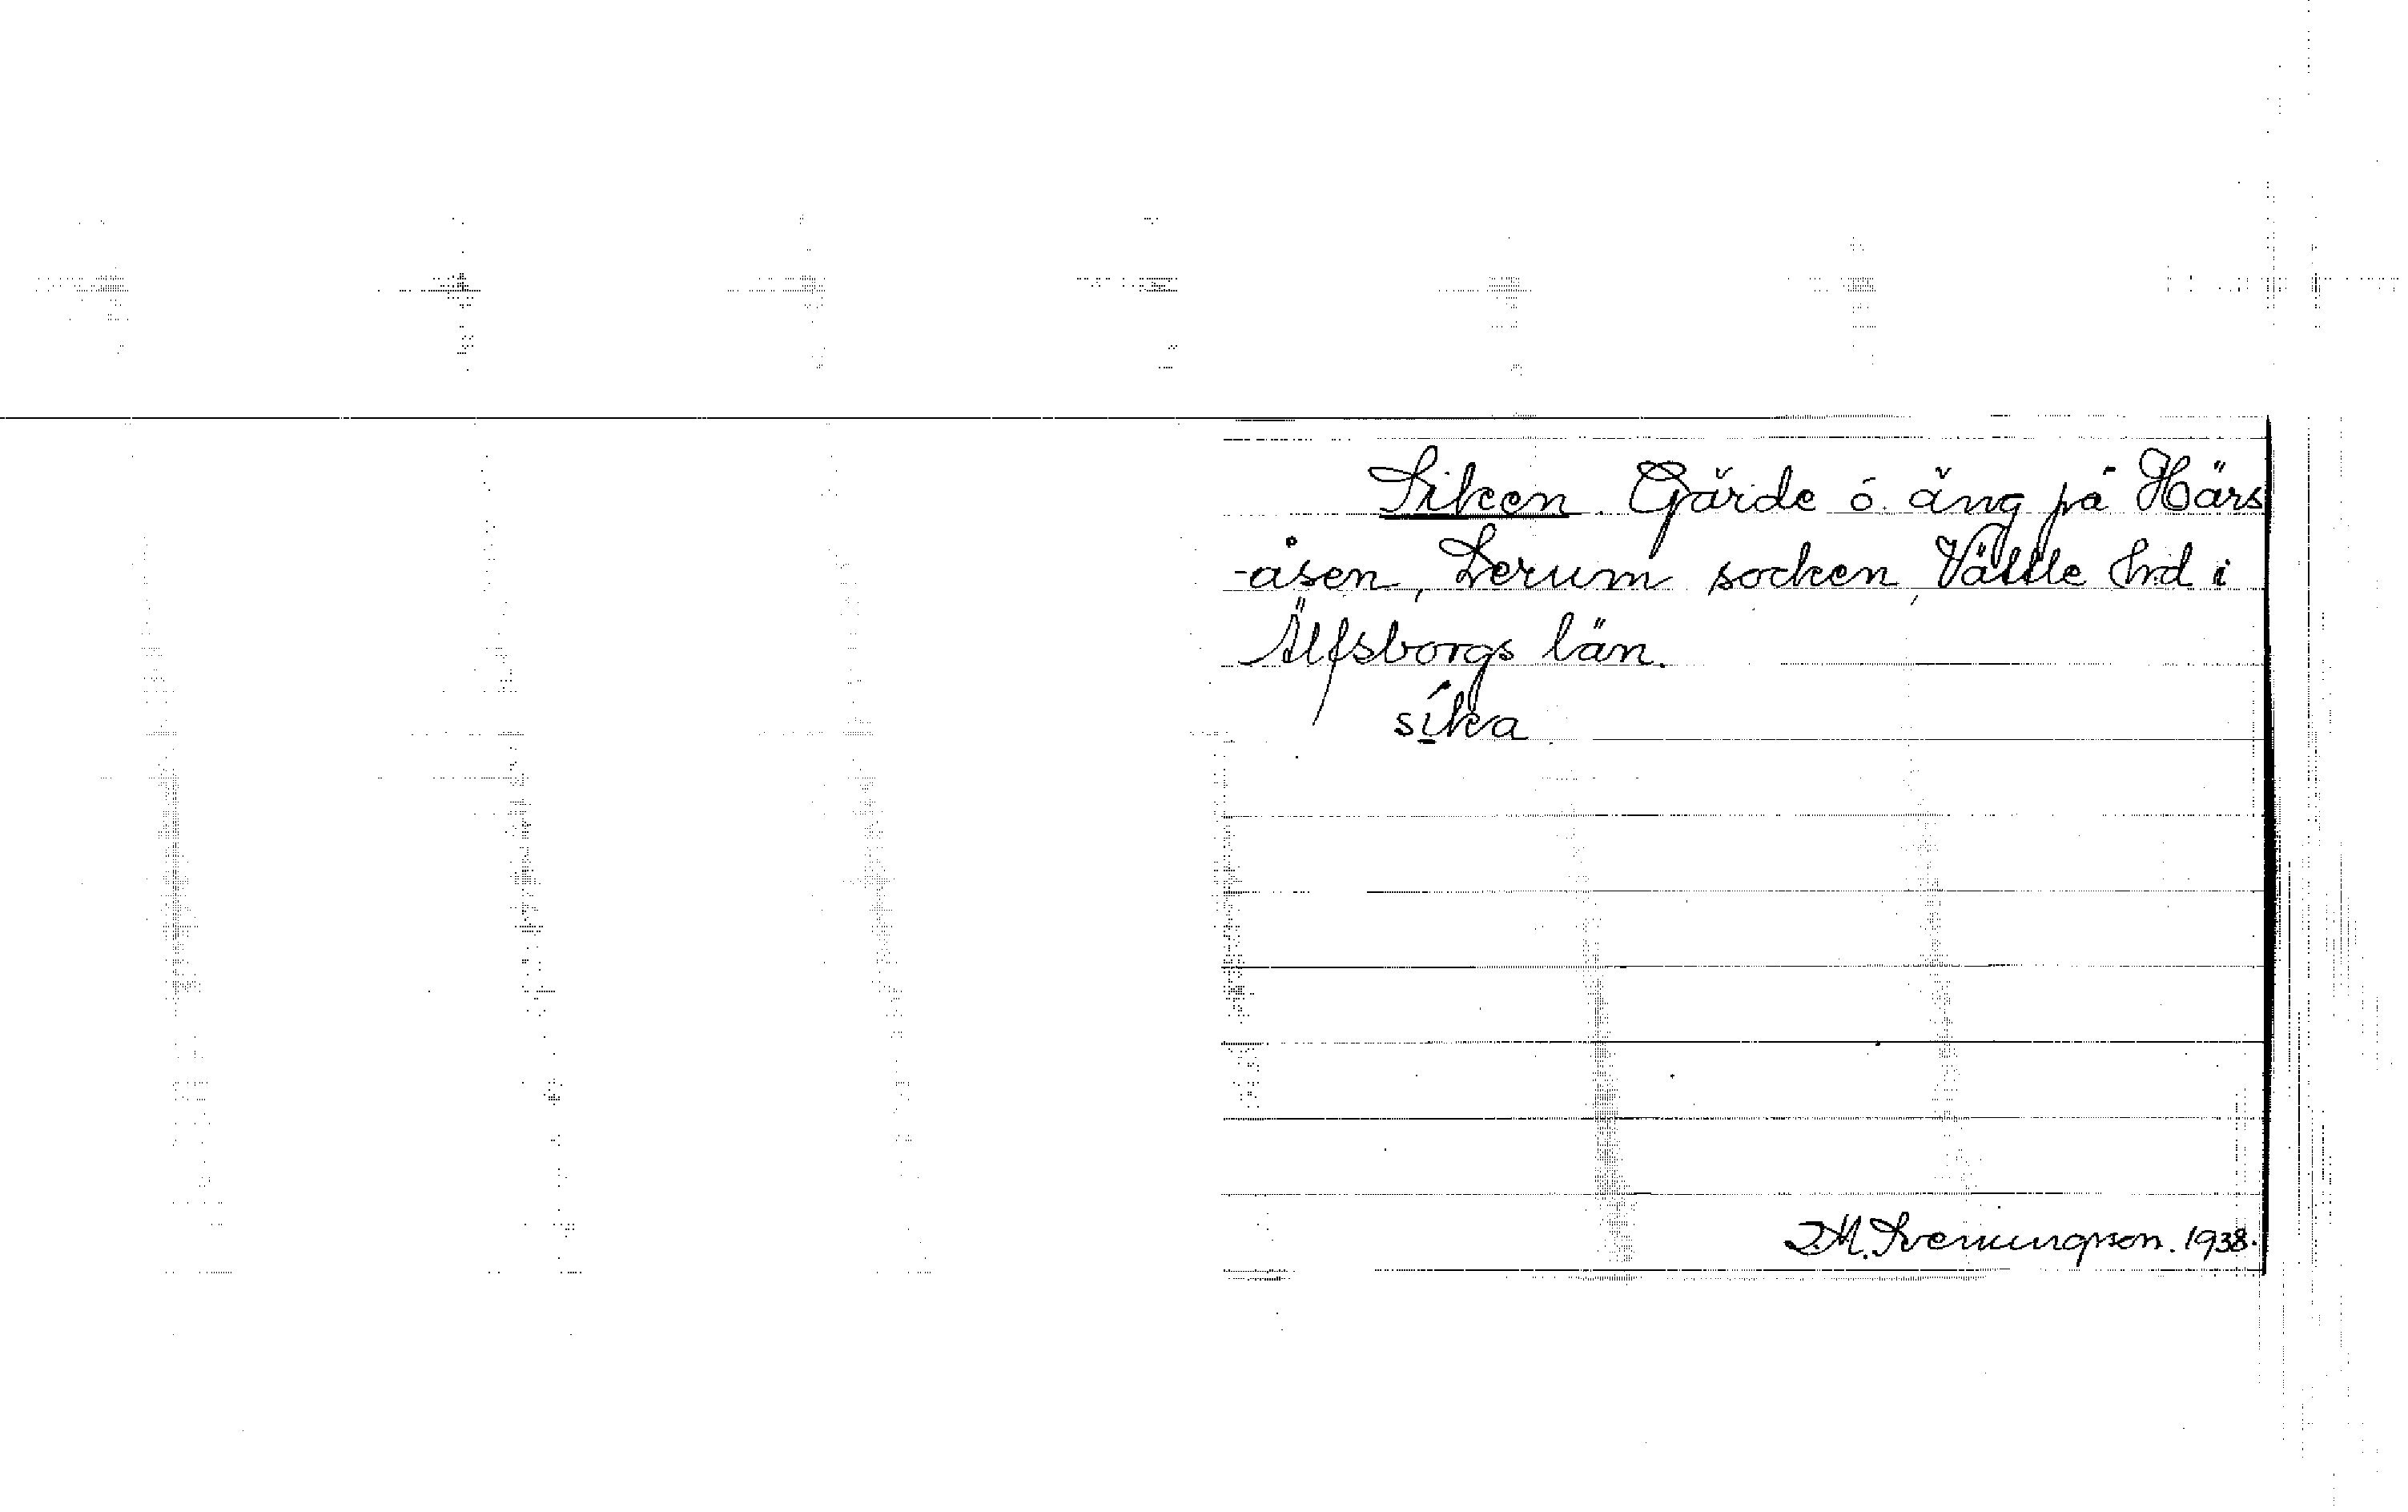 Siken. Gärde o. äng på Härs
-åsen, Lerum socken, Vättle hrd i
Älfsborgs län.
sika
D.M. Svenungsson. 1938.